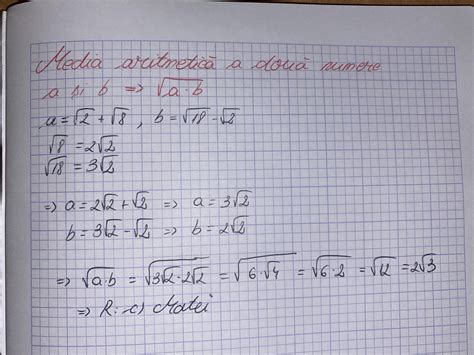 Media aritmetică a două numere
a și b => √a·b
a=√2+√8 , b=√18-√2
√8=2√2
√18=3√2
=> a=2√2+√2 => a=3√2
b=3√2-√2 => b=2√2
=> √a·b = √3√2·2√2 = √6·√4 = √6·2 = √12 = 2√3
=> R: c) Matei